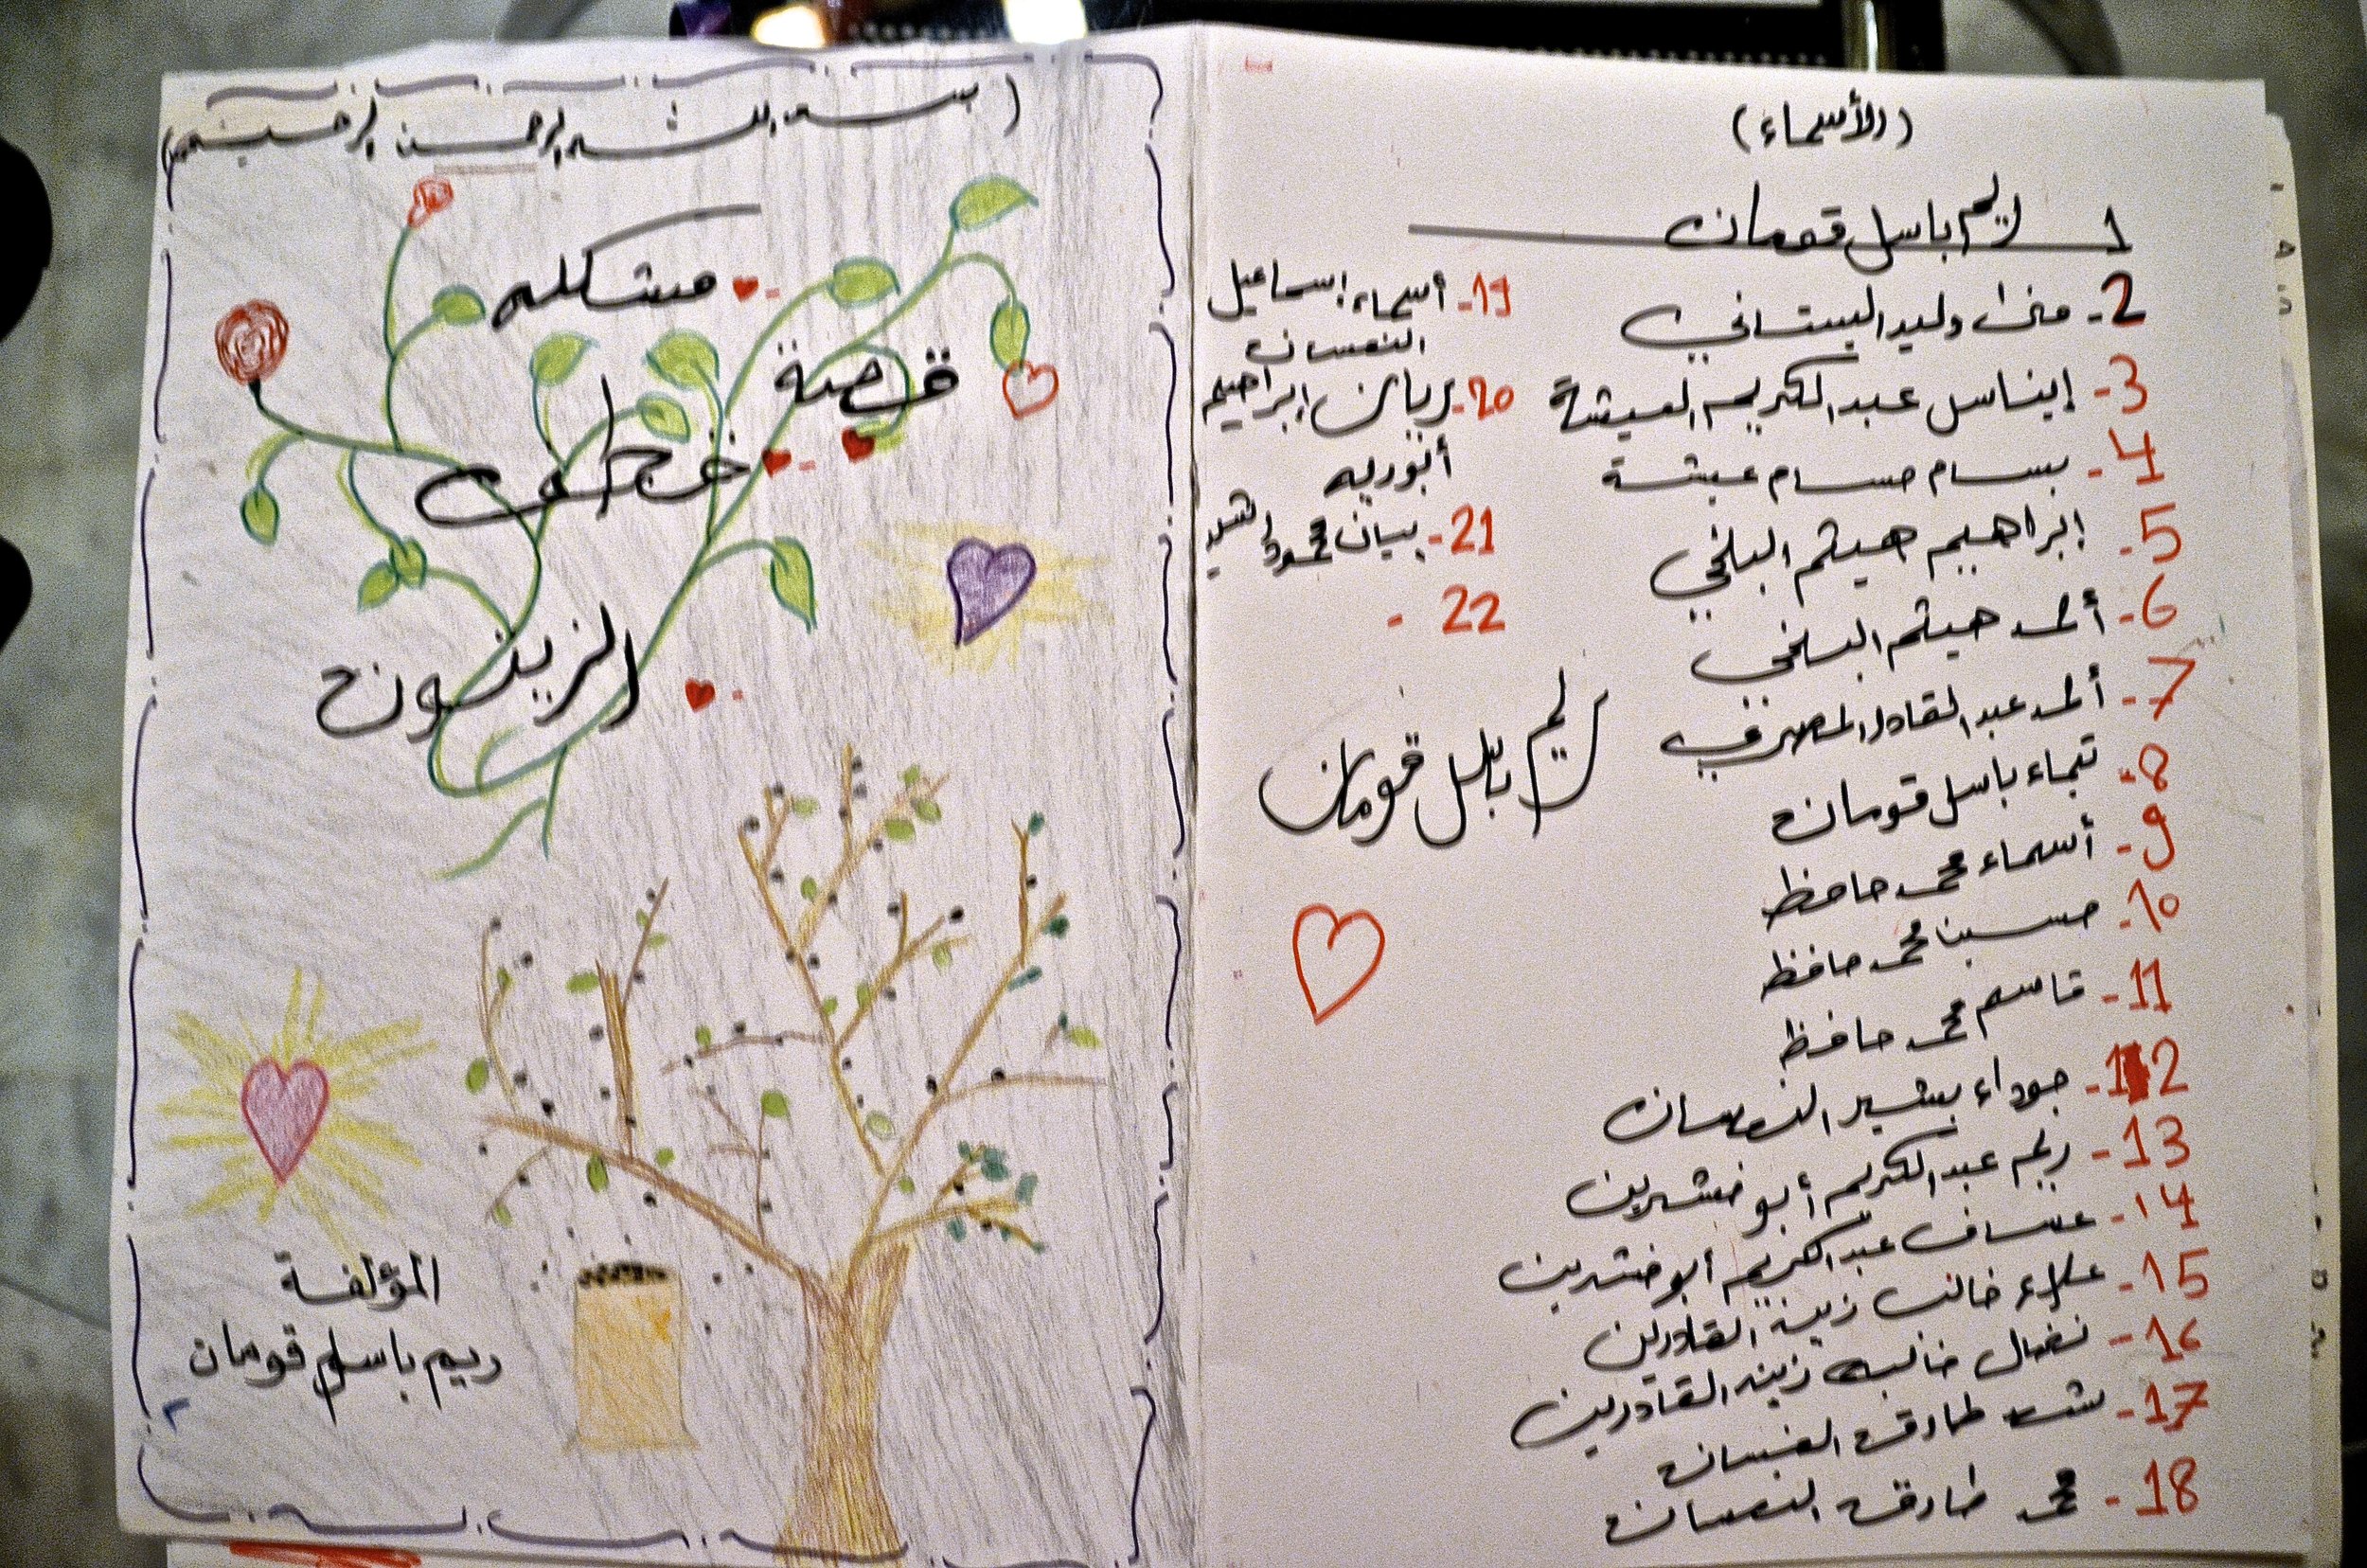 (بسم الله الرحمن الرحيم)
مشكلة
قصة
قطف
الزيتون
المؤلفة
ريم باسل قومان
٢
(الأسماء)
1 ريم باسل قومان
2- وليد البستاني
3- إيناس عبد الكريم العيشة
4- بسام حسام عيشة
5- إبراهيم هيثم البلخي
6- أحمد هيثم البلخي
7- أحمد عبد القادر المصري
8- تيماء باسل قومان
9- أسماء محمد حافظ
10- حسين محمد حافظ
11- قاسم محمد حافظ
12- بشير النعسان
13- ريم عبد الكريم أبو
14- عساف عبد الكريم أبو
15- علاء زينة القادرين
16- نضال زينة القادرين
17- طارق النعسان
18- محمد طارق النعسان
19- أسماء إسماعيل
النعسان
20- ريان إبراهيم
21- بيان محمود
22 -
ريم باسل قومان